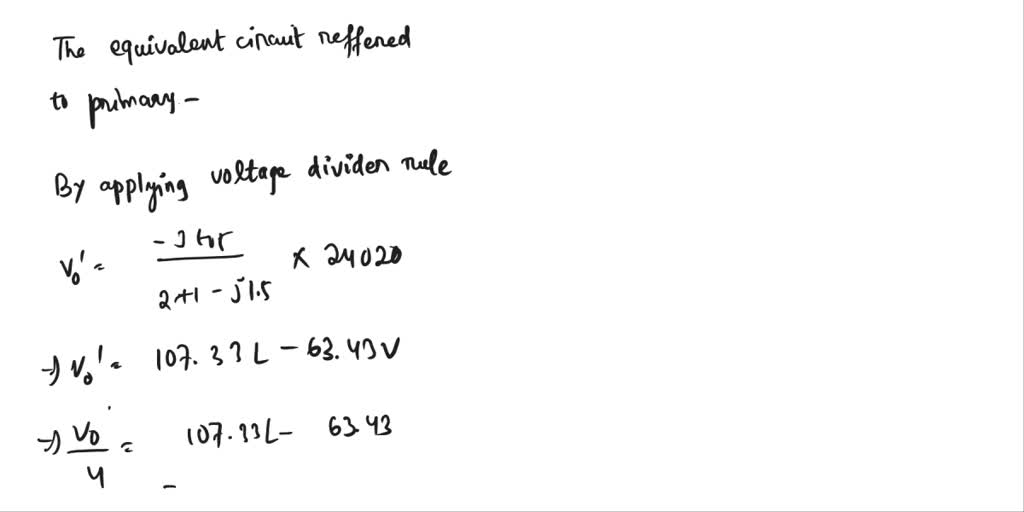 The equivalent circuit reffened
to primary -
By applying voltage divider rule
V₀' =
2+1 - j1.5
× 240∠0
→ V₀' = 107.33∠-63.43V
→ V₀/4 = 107.33∠- 63.43
-